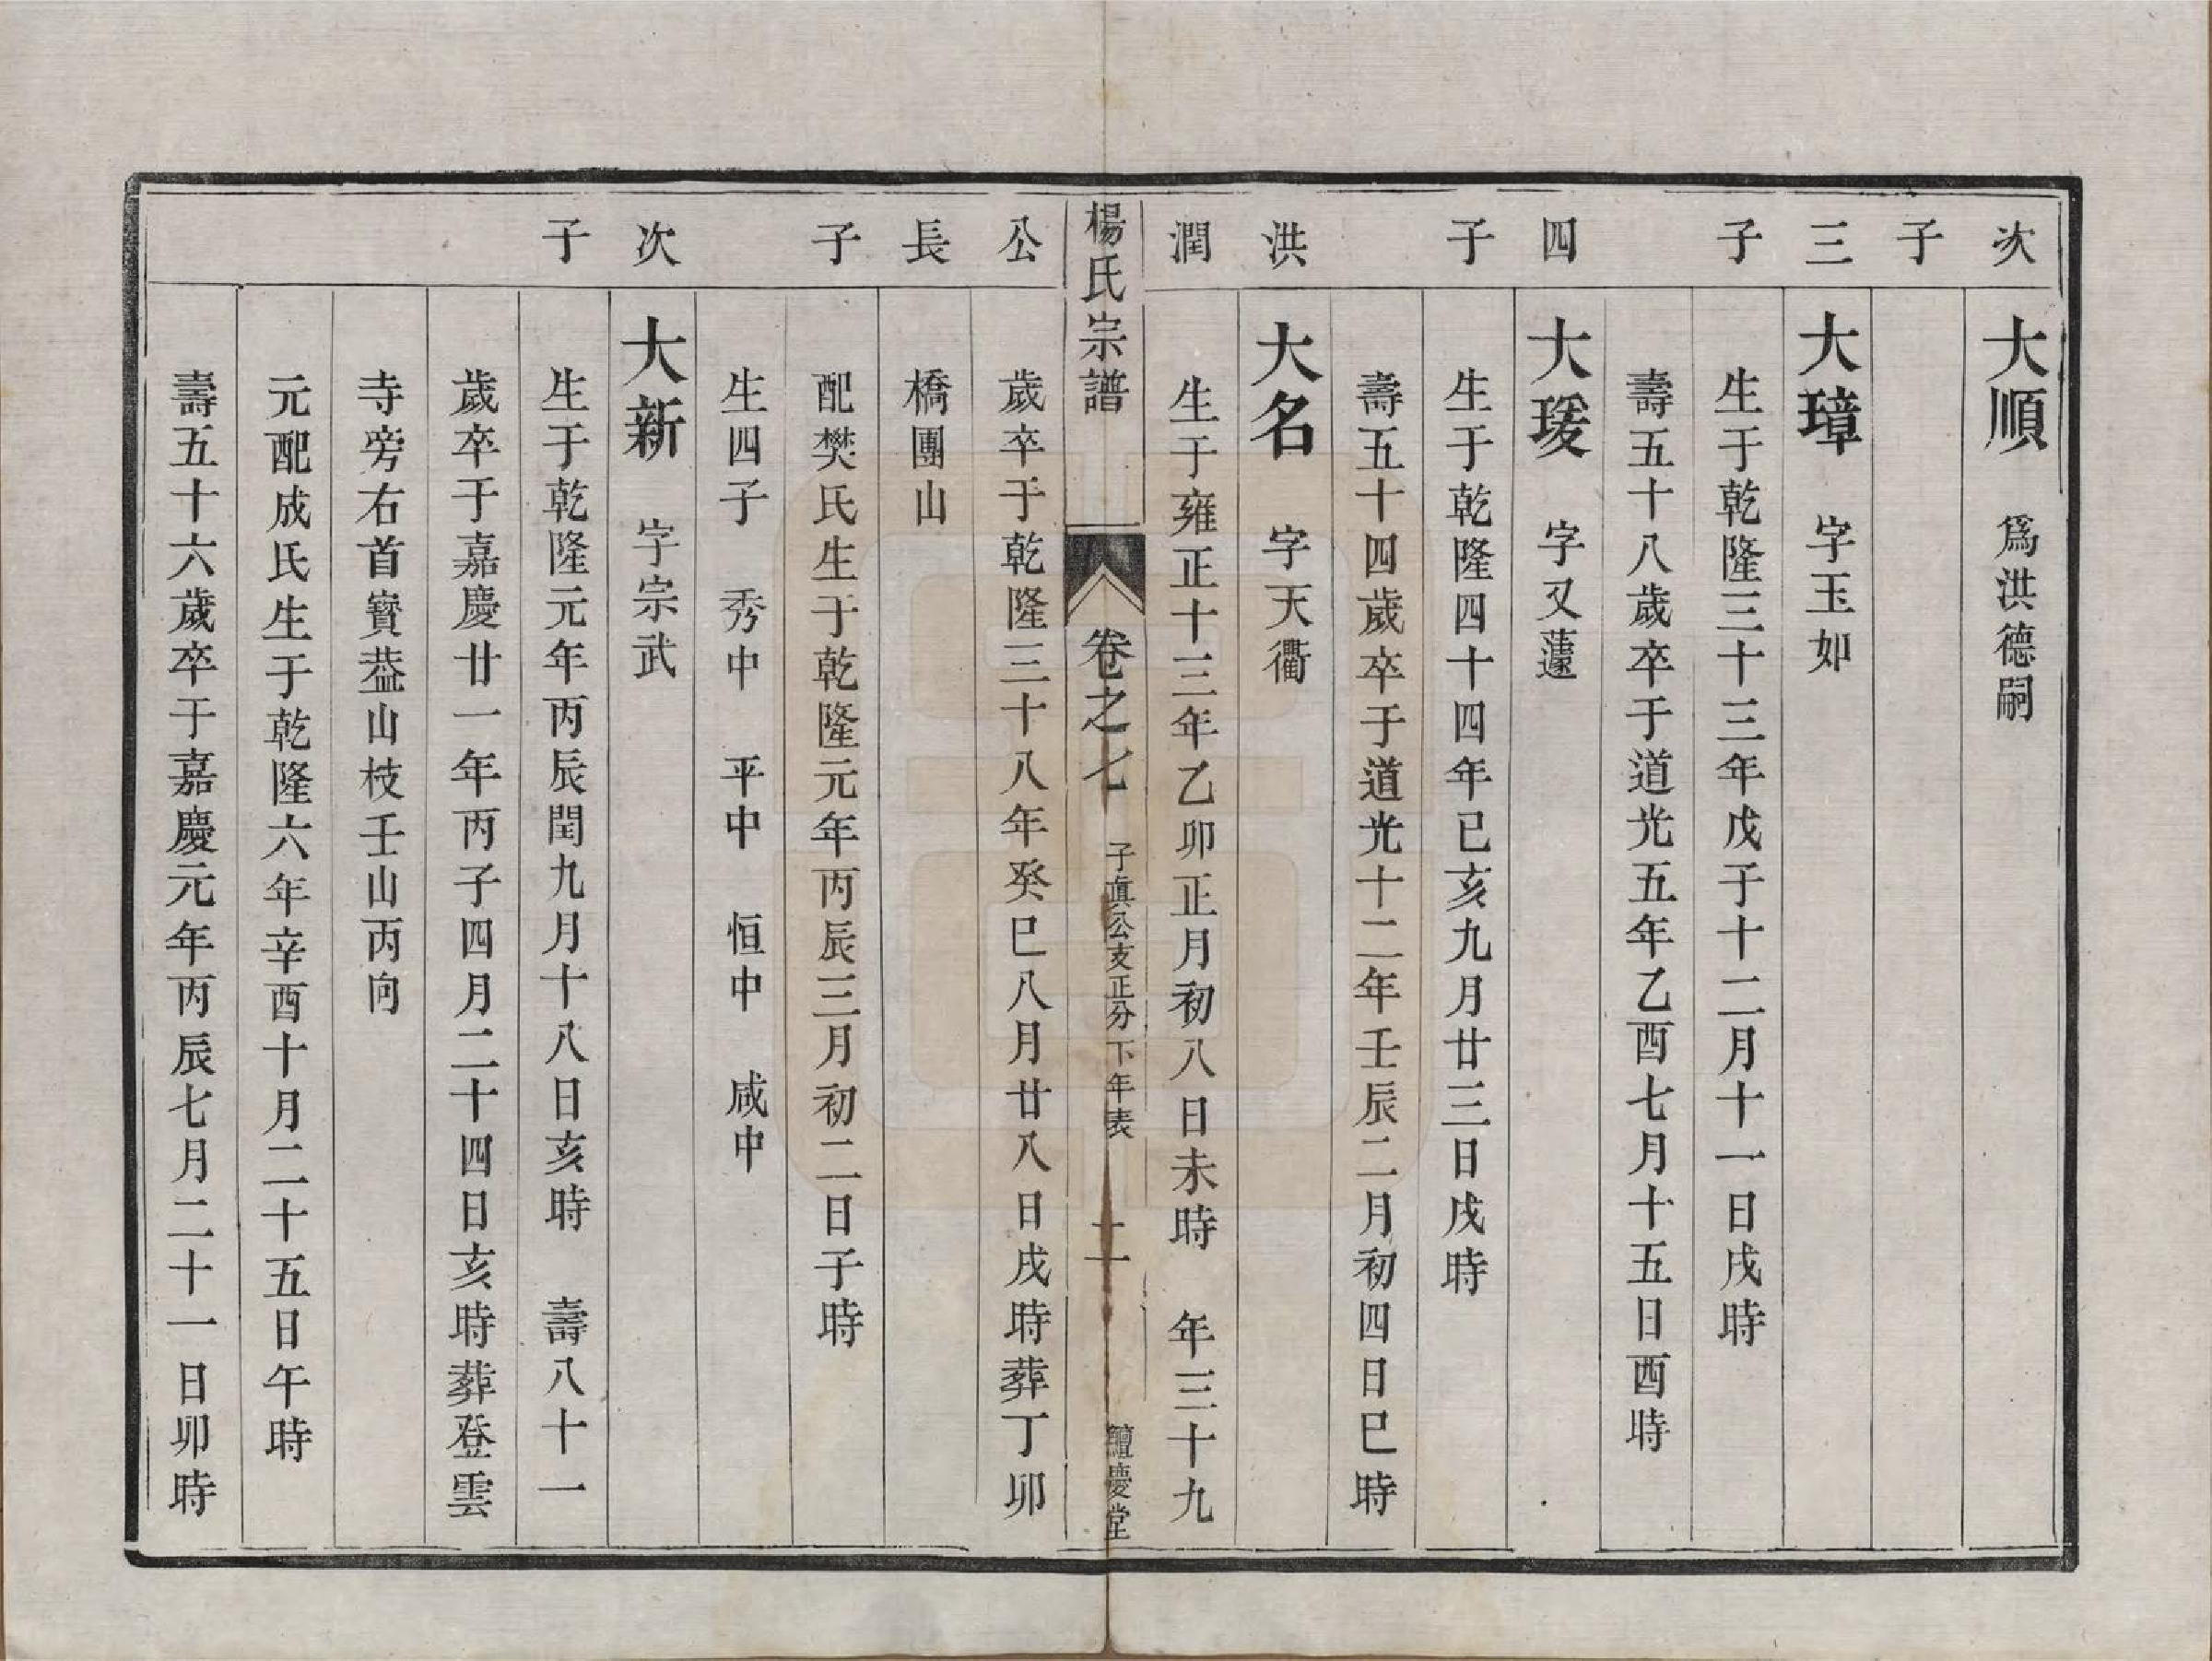 次子 大順 爲洪德嗣
三子 大璋 字玉如
生于乾隆三十三年戊子十二月十一日戌時
壽五十八歲卒于道光五年乙酉七月十五日酉時
四子 大瑗 字又蘧
生于乾隆四十四年己亥九月廿三日戌時
壽五十四歲卒于道光十二年壬辰二月初四日巳時
洪潤公長子 大名 字天衢
生于雍正十三年乙卯正月初八日未時 年三十九
楊氏宗譜 卷之七 子真公支正分下年表 十一 慶堂
歲卒于乾隆三十八年癸巳八月廿八日戌時葬丁卯
橋團山
配樊氏生于乾隆元年丙辰三月初二日子時
生四子 秀中 平中 恒中 咸中
次子 大新 字宗武
生于乾隆元年丙辰閏九月十八日亥時 壽八十一
歲卒于嘉慶廿一年丙子四月二十四日亥時葬登雲
寺旁右首寳葢山枝壬山丙向
元配成氏生于乾隆六年辛酉十月二十五日午時
壽五十六歲卒于嘉慶元年丙辰七月二十一日卯時